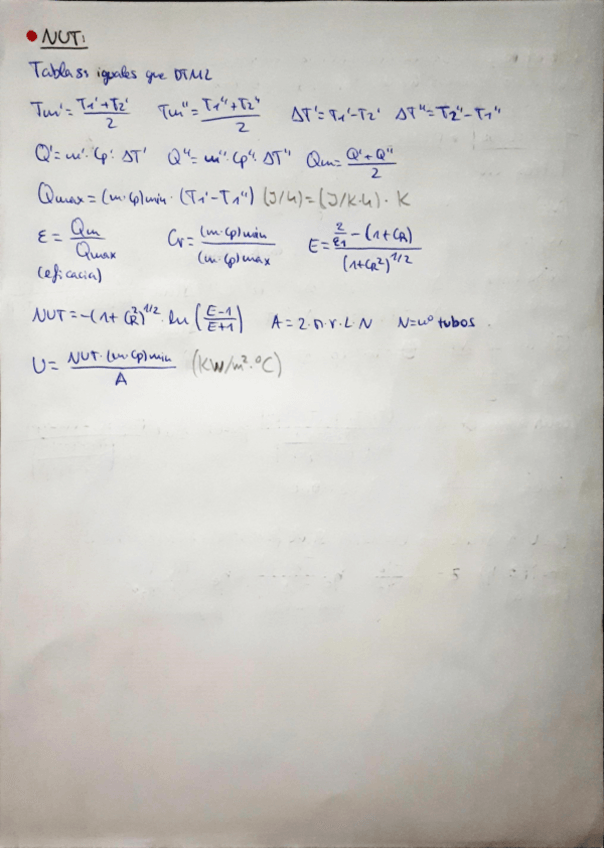 NUT:
Tablass iguales que DTML
Tm' = (T1' + T2')/2   Tm'' = (T1'' + T2'')/2   ΔT' = T1' - T2'   ΔT'' = T2'' - T1''
Q' = m' · Cp' · ΔT'   Q'' = m'' · Cp'' · ΔT''   Qm = (Q' + Q'')/2
Qmax = (m · Cp)min · (T1' - T1'') (J/h) = (J/K·h) · K
ε = Qm/Qmax   Cr = (m · Cp)min/(m · Cp)max   E = (2/ε1 - (1 + CR))/(1 + CR²)^1/2
(eficacia)
NUT = -(1 + CR²)^1/2 · ln((E-1)/(E+1))   A = 2 · π · r · L · N   N = nº tubos
U = NUT · (m · Cp)min/A (KW/m² · ºC)